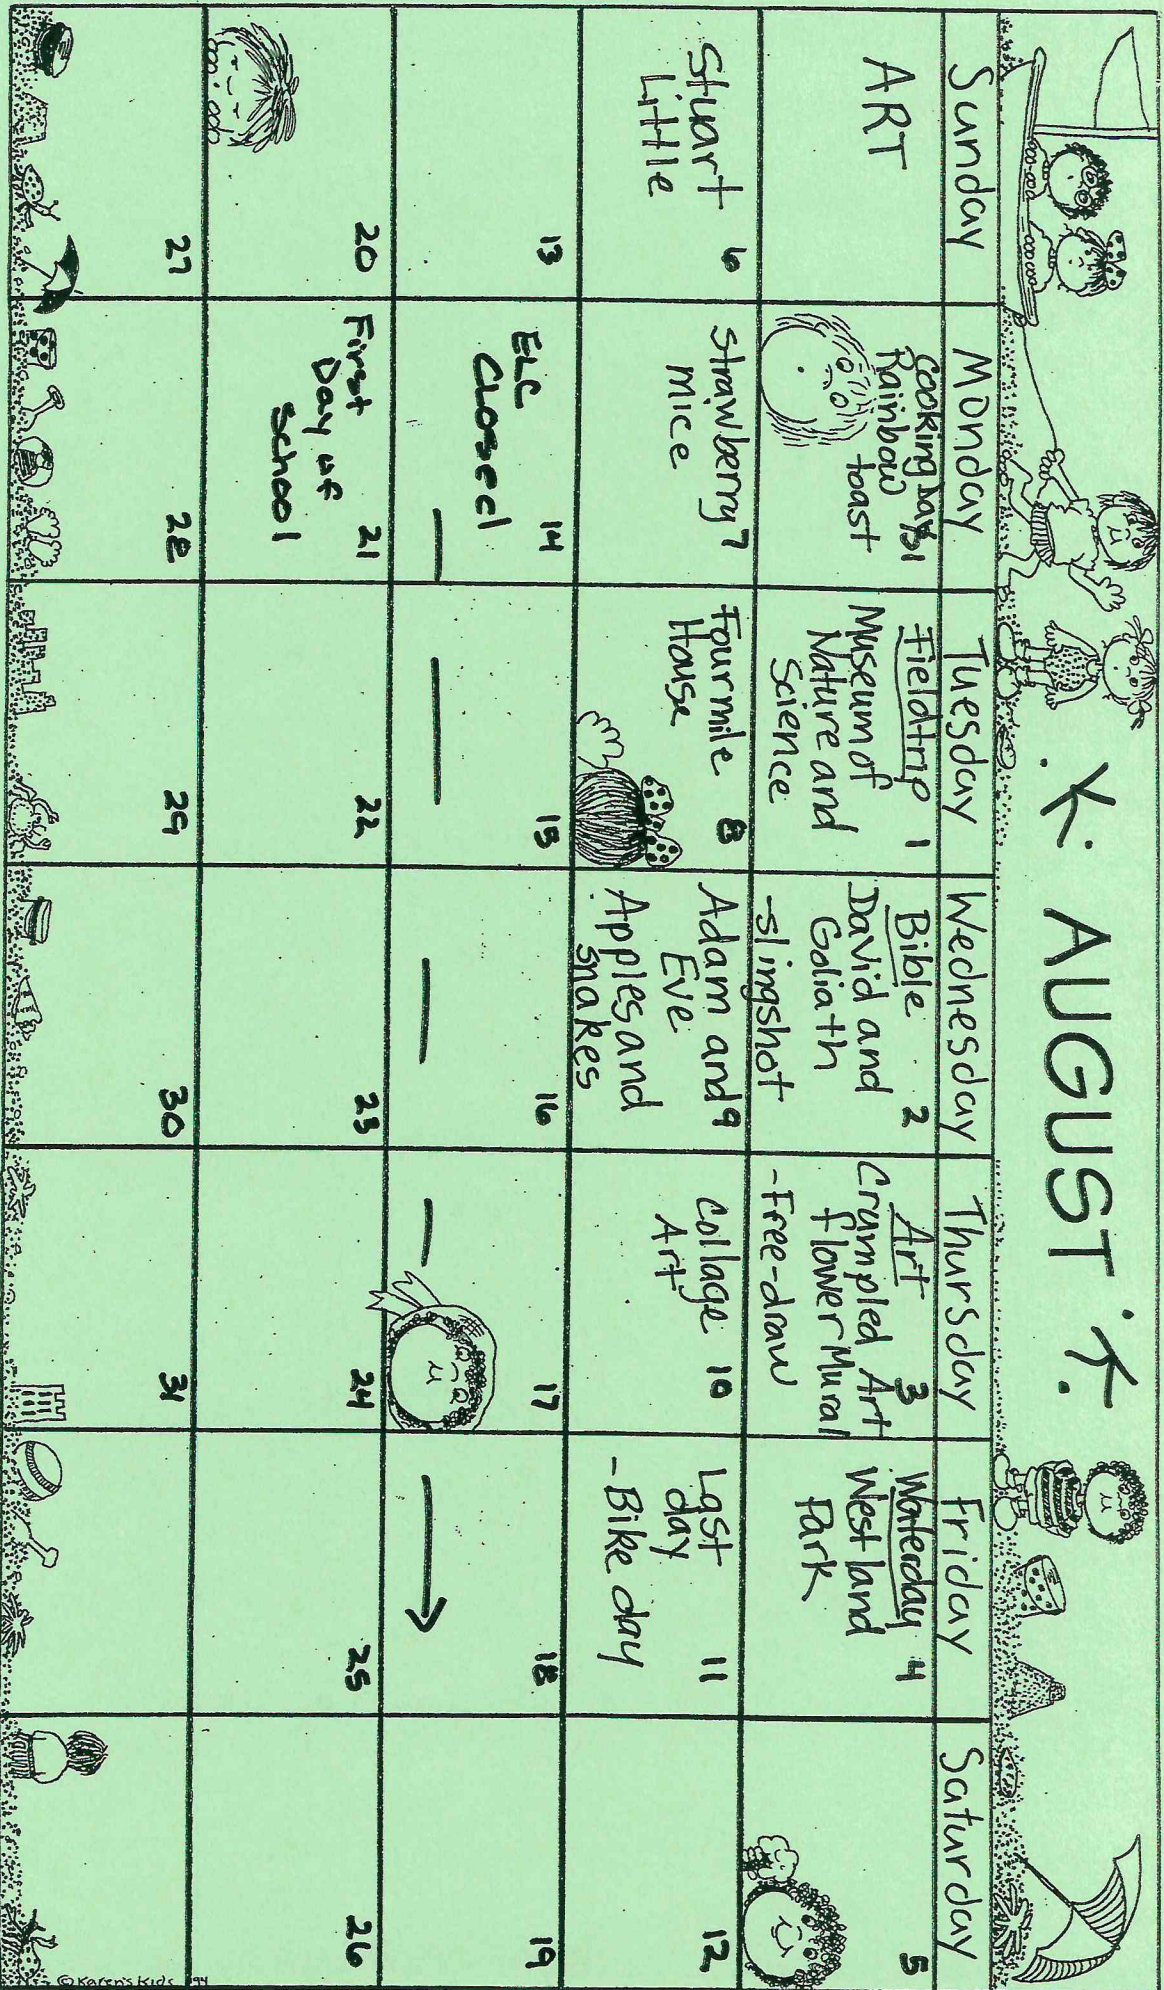 AUGUST
Sunday
Monday
Tuesday
Wednesday
Thursday
Friday
Saturday
ART
Cooking Day 31
Rainbow
toast
Fieldtrip 1
Museum of
Nature and
Science
Bible 2
David and
Goliath
-slingshot
Art 3
Crumpled Art
flower Mural
-Free-draw
Waterday 4
Westland
Park
5
Stuart 6
Little
Strawberry 7
mice
Fourmile 8
House
Adam and 9
Eve
Apples and
snakes
Collage 10
Art
Last 11
day
-Bike day
12
13
ELC 14
Closed
15
16
17
18
19
20
First 21
Day of
School
22
23
24
25
26
27
28
29
30
31
©Karen's Kids 94